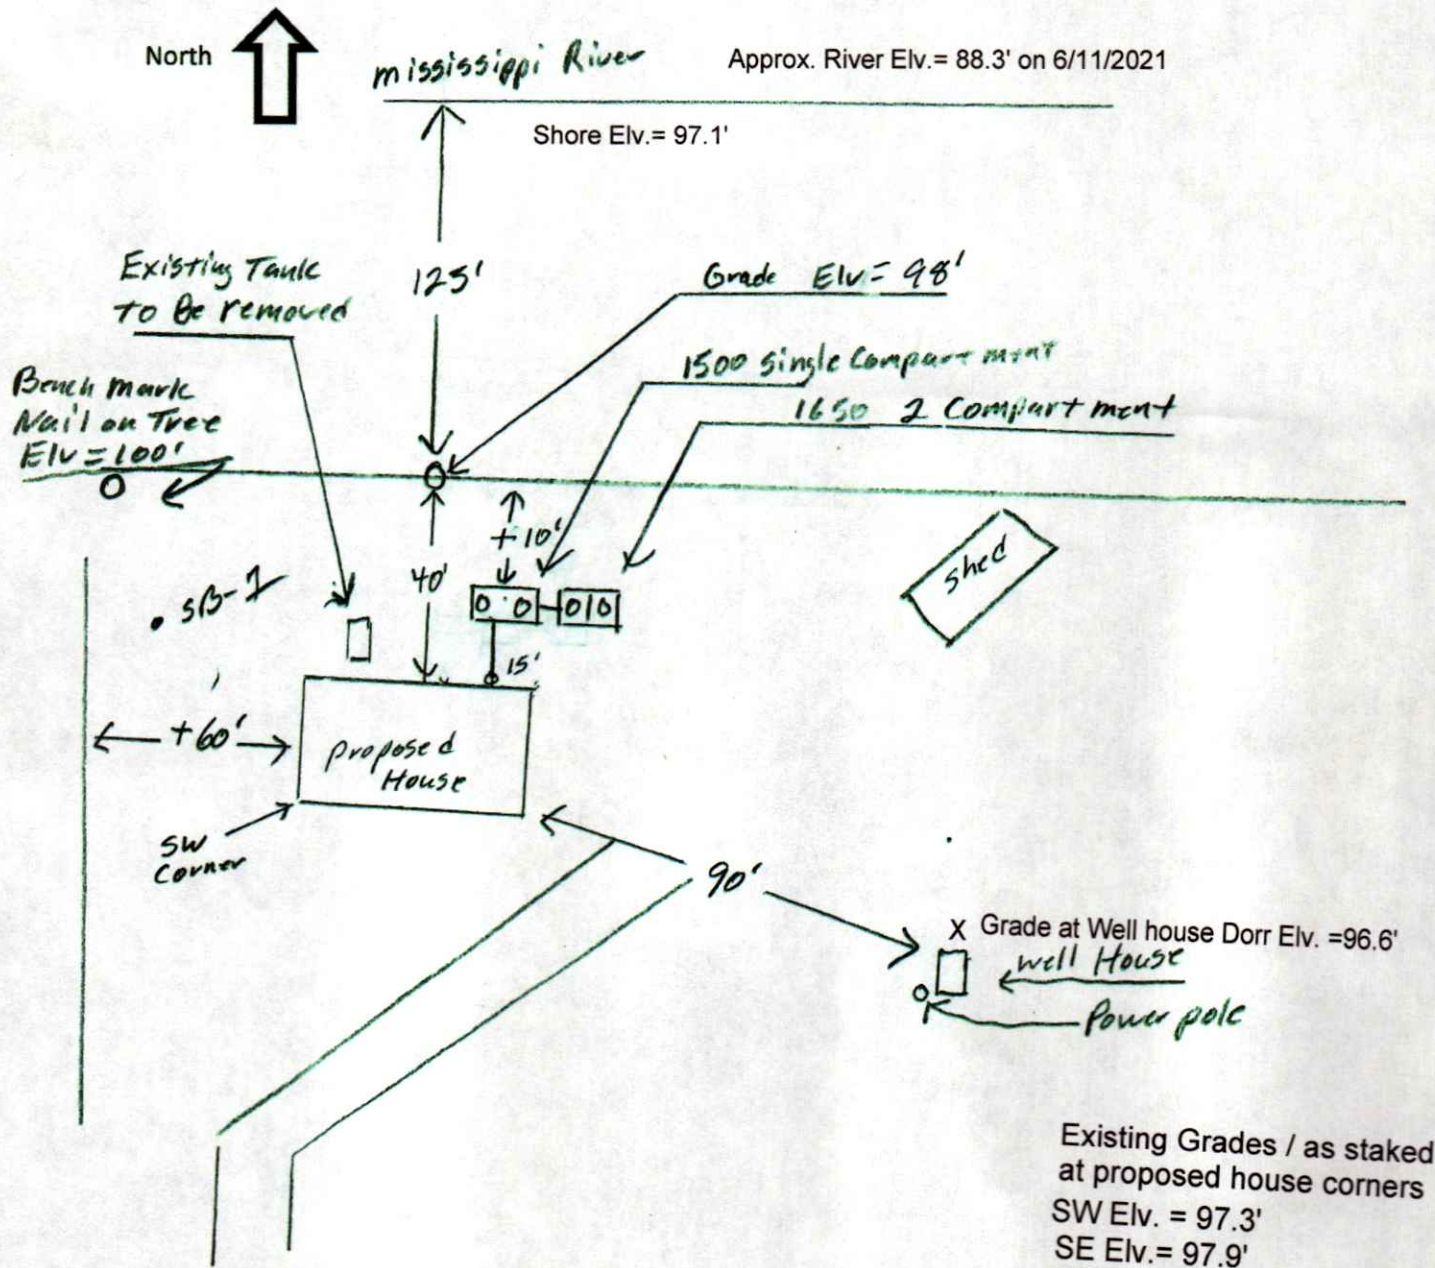 North
mississippi River
Approx. River Elv.= 88.3' on 6/11/2021
Shore Elv.= 97.1'
Existing Tank
to Be removed
125'
Grade Elv= 98'
1500 single Compartment
1650 2 Compartment
Bench mark
Nail on Tree
Elv=100'
+10'
40'
SB-1
shed
15'
+60'
proposed
House
SW
Corner
90'
X Grade at Well house Dorr Elv. =96.6'
well House
Power pole
Existing Grades / as staked
at proposed house corners
SW Elv. = 97.3'
SE Elv.= 97.9'